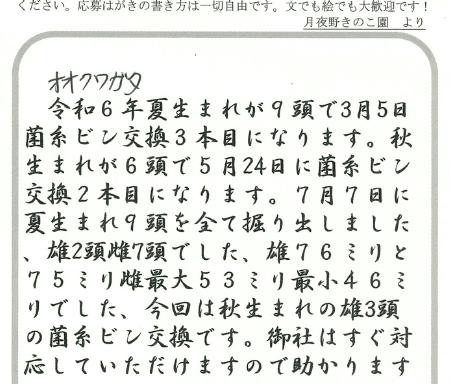 ください。応募はがきの書き方は一切自由です。文でも絵でも大歓迎です！
月夜野きのこ園　より
オオクワガタ
令和６年夏生まれが９頭で3月5日
菌糸ビン交換３本目になります。秋
生まれが６頭で５月24日に菌糸ビン
交換２本目になります。７月７日に
夏生まれ９頭を全て掘り出しました
、雄2頭雌7頭でした、雄７６ミリと
７５ミリ雌最大５３ミリ最小４６ミ
リでした、今回は秋生まれの雄3頭
の菌糸ビン交換です。御社はすぐ対
応していただけますので助かります